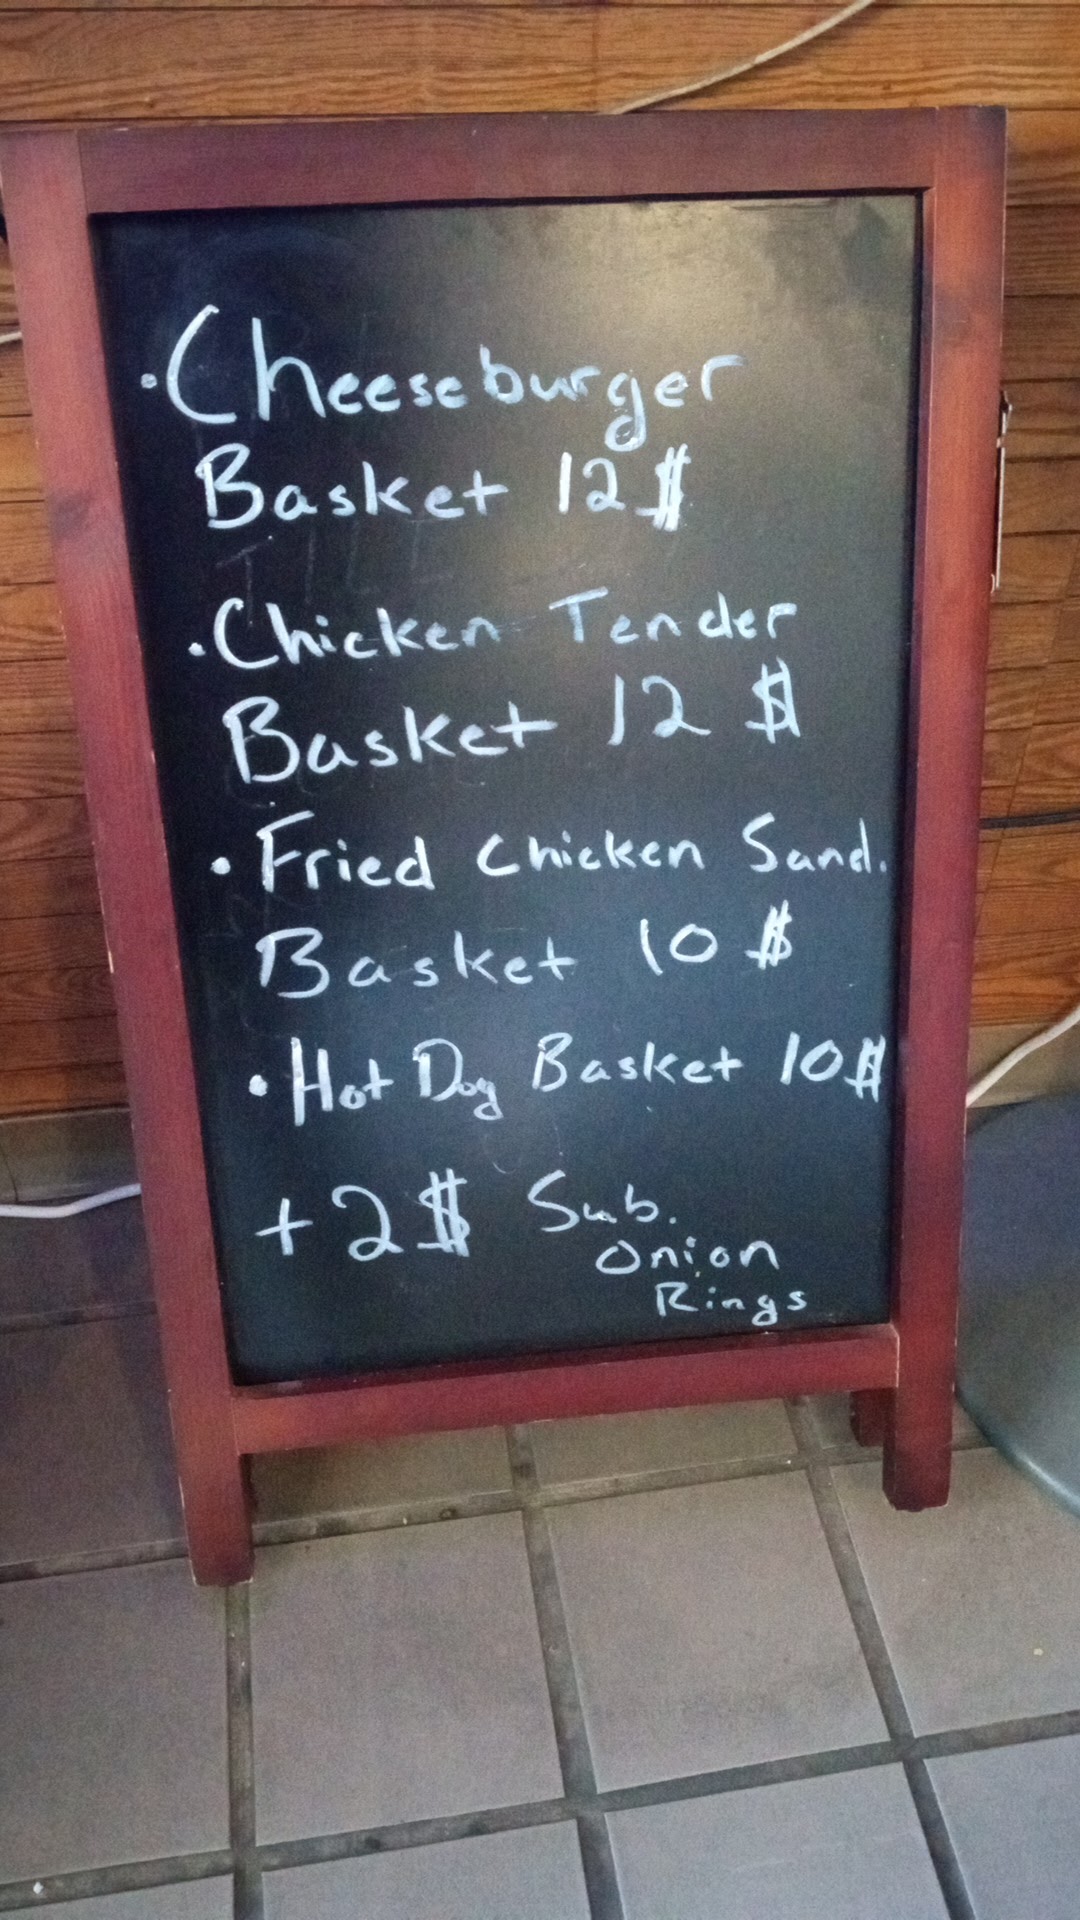 • Cheeseburger
Basket 12 $
• Chicken Tender
Basket 12 $
• Fried Chicken Sand.
Basket 10 $
• Hot Dog Basket 10 $
+ 2 $ Sub.
Onion
Rings